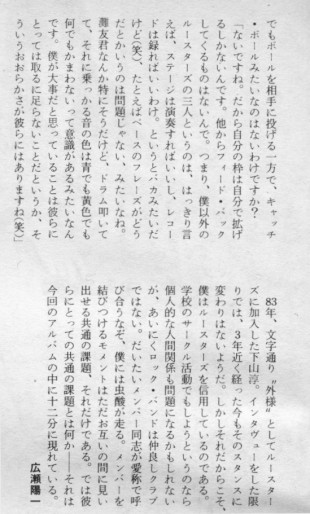 でもボールを相手に投げる一方で、キャッチ
・ボールみたいなのはないわけですか？
「ないですね。だから自分の枠は自分で拡げ
るしかないんです。他からフィード・バック
してくるものはないんで。つまり、僕以外の
ルースターズの三人というのは、はっきり言
えば、ステージは演奏すればいいし、レコー
ドは録ればいいわけ。というとバカみたいだ
けど(笑)、たとえばベースのフレーズがどう
だとかいうのは問題じゃない、みたいなね。
灘友君なんか特にそうだけど、ドラム叩いて
て、それに乗っかる音の色は青でも黄色でも
何でもかまわないって意識があるみたいなん
です。僕が大事だと思っていることは彼らに
とっては取るに足らないことだというか、そ
ういうおおらかさが彼らにはありますね(笑)」
83年、文字通り〝外様〟としてルースター
ズに加入した下山淳。インタヴューをした限
りでは、３年近く経った今もそのスタンスに
変わりはないようだ。しかしそれだからこそ、
僕はルースターズを信用しているのである。
学校のサークル活動でもしようというのなら
個人的な人間関係も問題になるかもしれない
が、あいにくロック・バンドは仲良しクラブ
ではない。だいたいメンバー同志が愛称で呼
び合うなぞ、僕には虫酸が走る。メンバーを
結びつけるモメントはただお互いの間に見い
出せる共通の課題、それだけである。では彼
らにとっての共通の課題とは何か――それは
今回のアルバムの中に十二分に現れている。
広瀬陽一